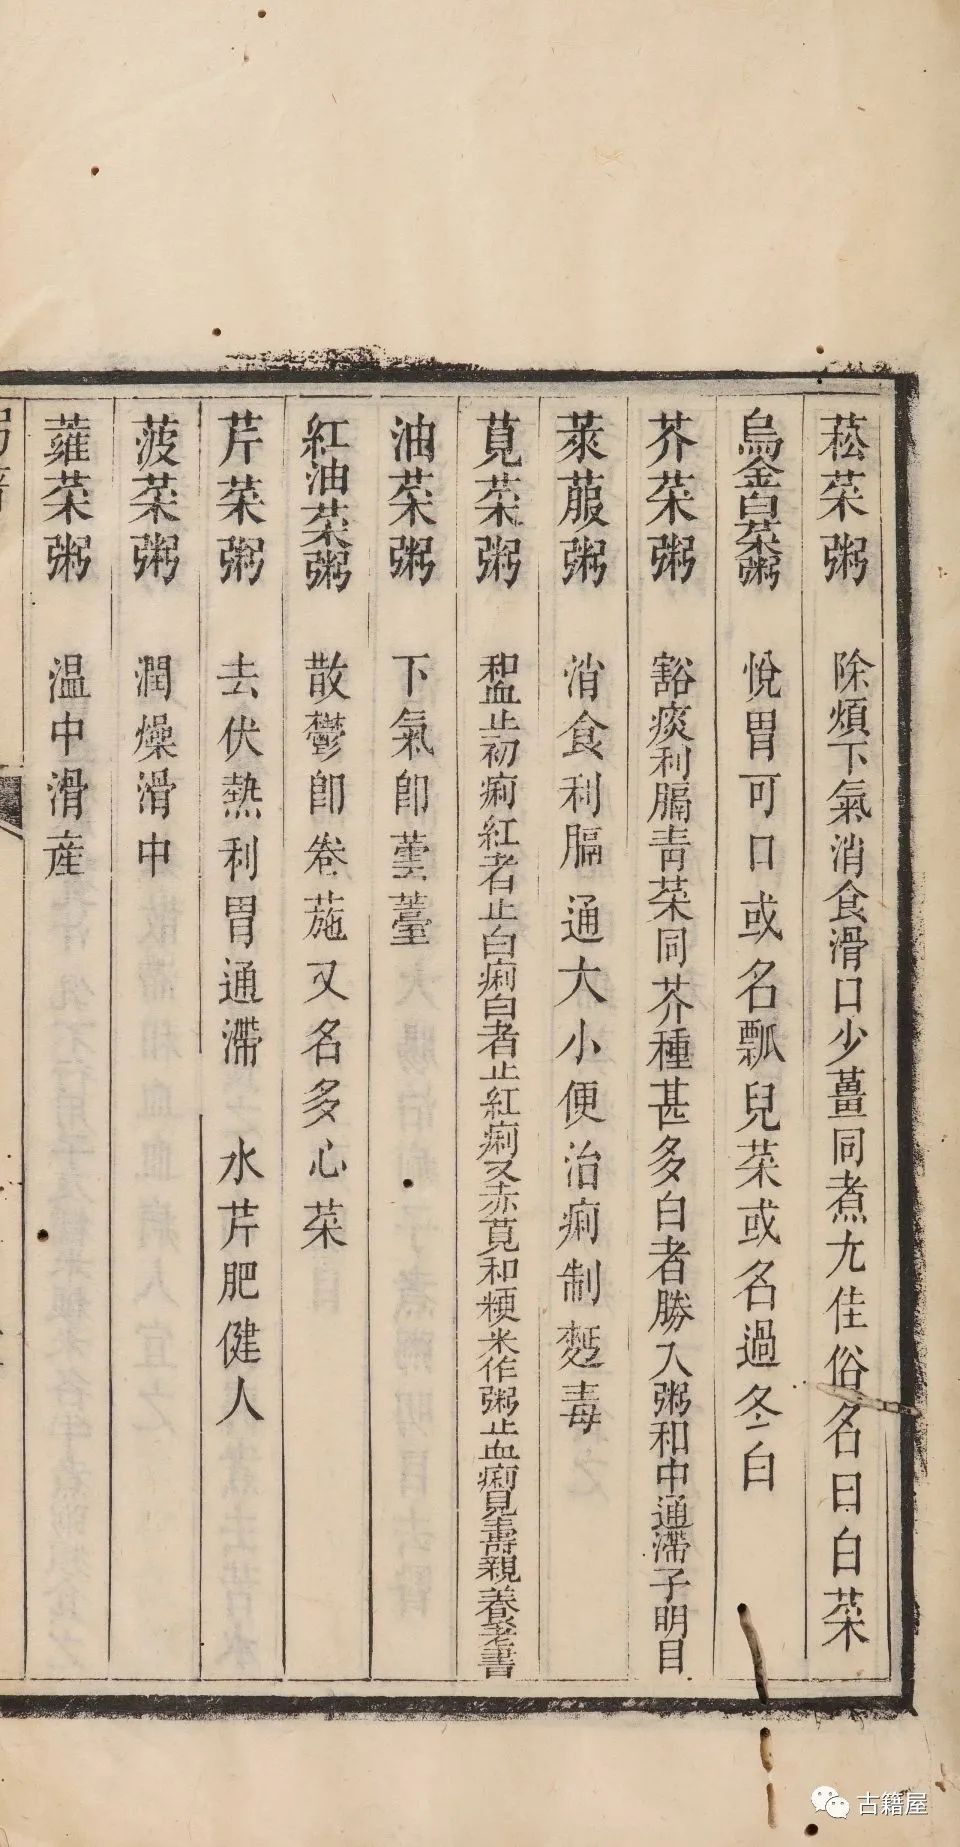 菘菜粥　除煩下氣消食滑口少薑同煮尤佳俗名曰白菜
烏金白菜粥　悅胃可口或名瓢兒菜或名過冬白
芥菜粥　豁痰利膈青菜同芥種甚多白者勝入粥和中通滯子明目
萊菔粥　消食利膈通大小便治痢制麪毒
莧菜粥　和血止初痢紅者止白痢白者止紅痢又赤莧和粳米作粥止血痢見壽親養老書
油菜粥　下氣卽蕓薹
紅油菜粥　散鬱卽卷葹又名多心菜
芹菜粥　去伏熱利胃通滯　水芹肥健人
菠菜粥　潤燥滑中
蕹菜粥　温中滑産
古籍屋